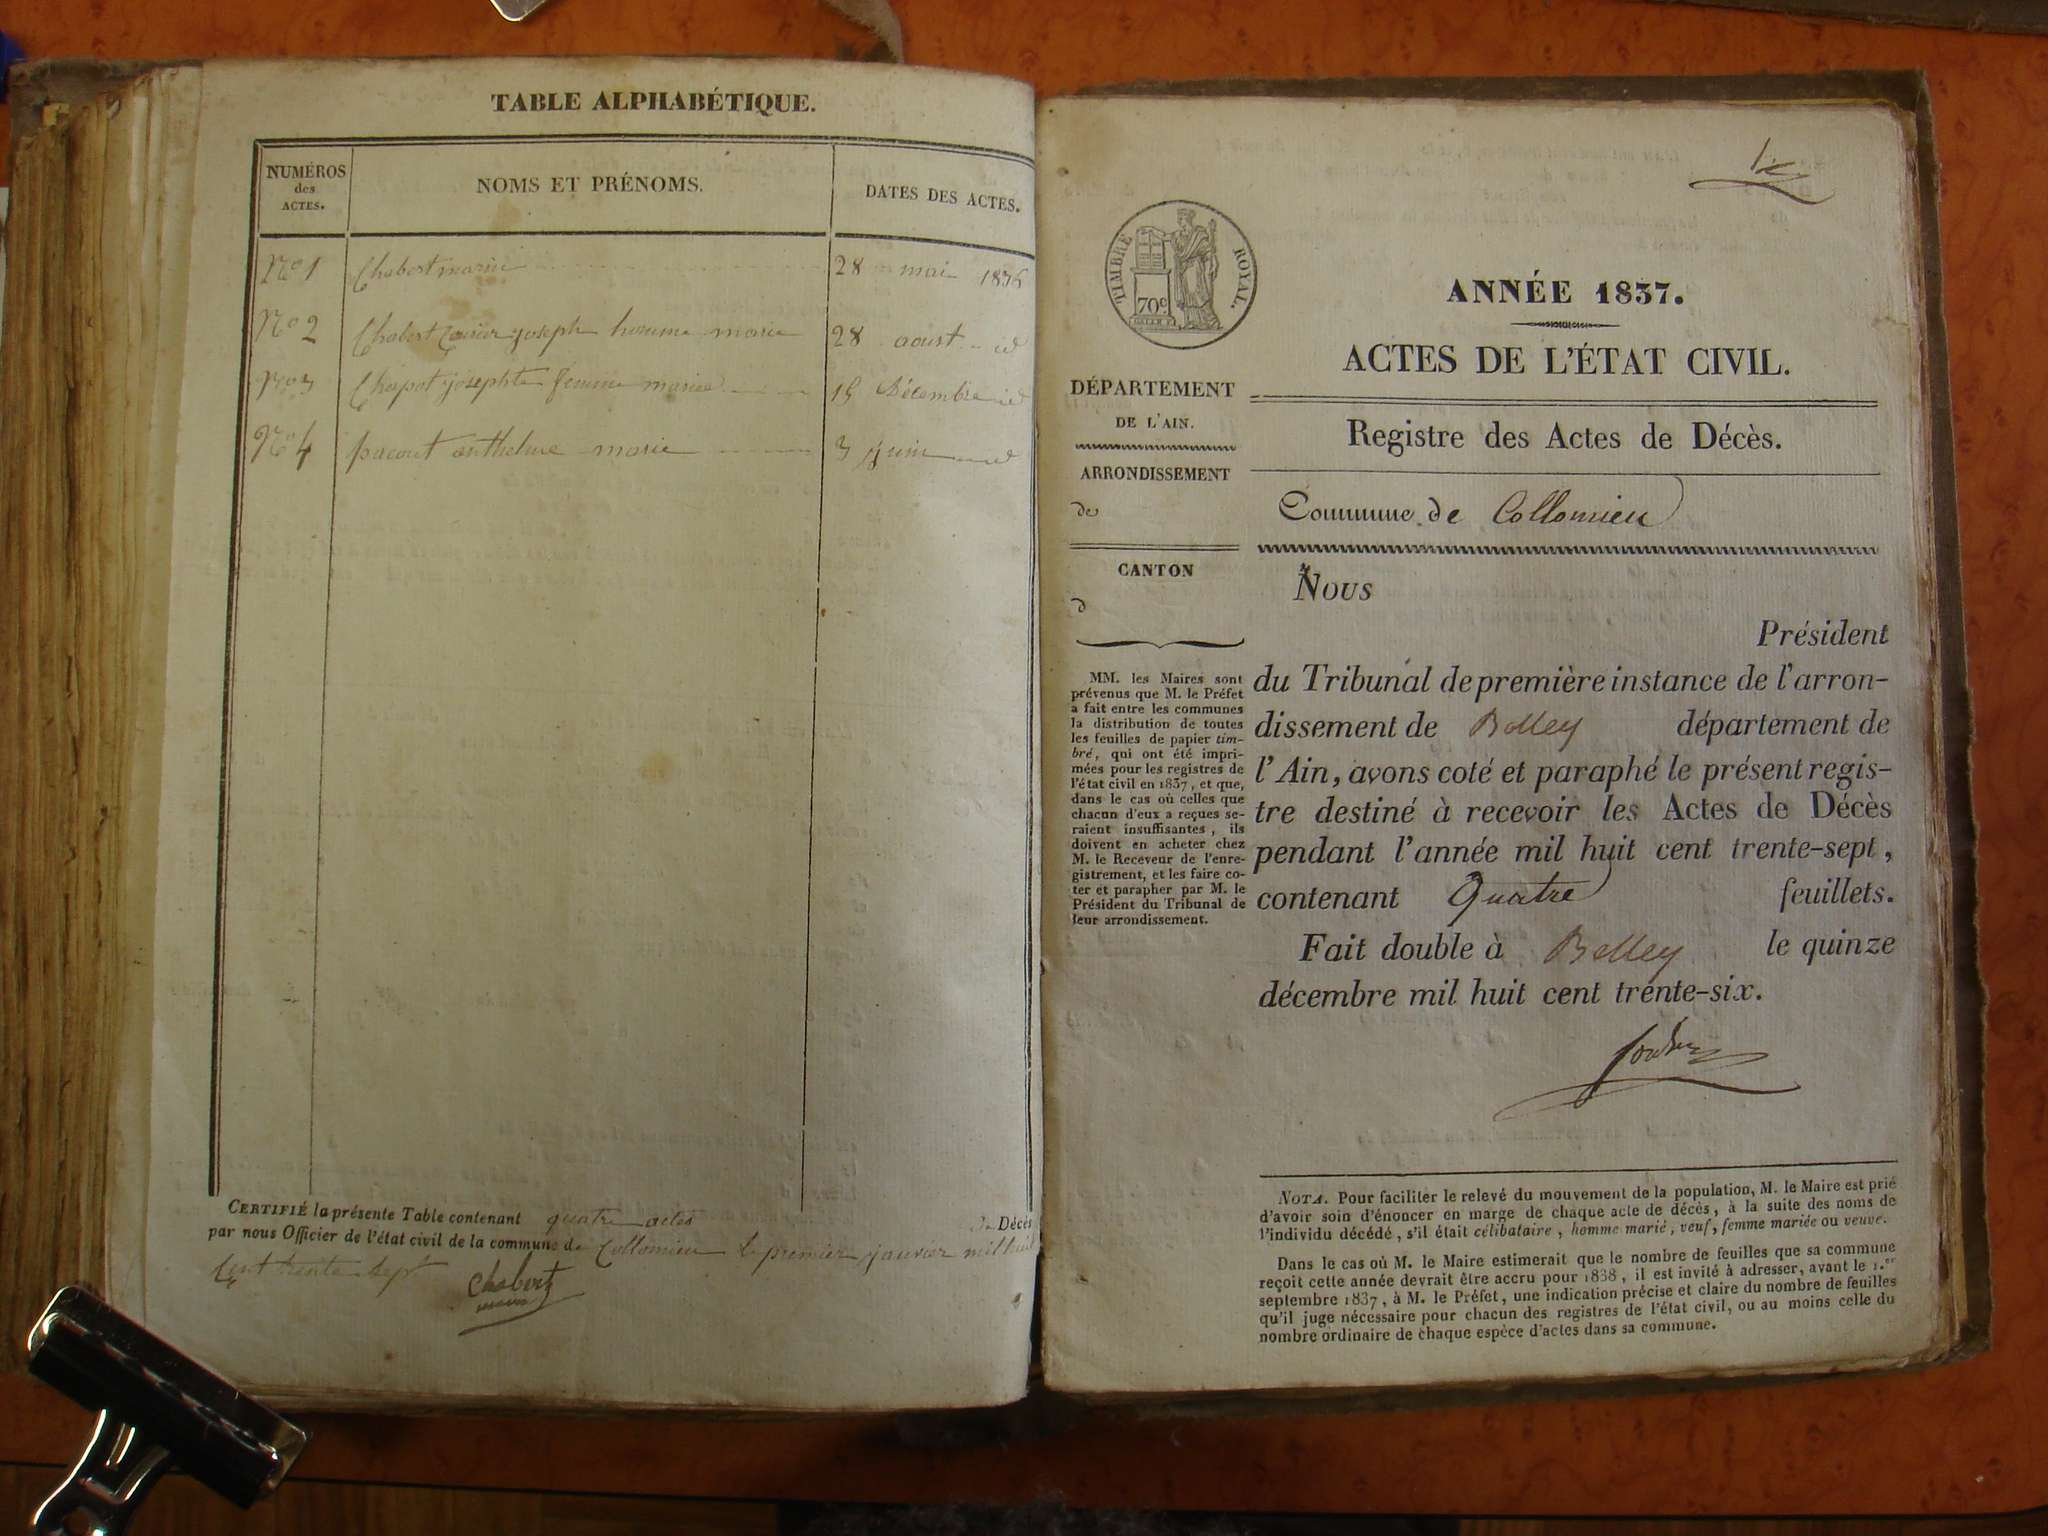 TABLE ALPHABÉTIQUE.
NUMÉROS
des
ACTES.
NOMS ET PRÉNOMS.
DATES DES ACTES.
No 1 Chabert marie 28 mai 1836
No 2 Chabert joseph homme marié 28 aoust id
No 3 Chapot josephte femme mariée 15 Décembre id
No 4 pacout anthelme marié 3 juin id
CERTIFIÉ la présente Table contenant quatre actes de Décès
par nous Officier de l'état civil de la commune de Collomieu le premier janvier mil huit
Cent trente sept
Chabert
TIMBRE ROYAL.
70c
ANNÉE 1837.
ACTES DE L'ÉTAT CIVIL.
Registre des Actes de Décès.
Commune de Collomieu
DÉPARTEMENT
DE L'AIN.
ARRONDISSEMENT
de
CANTON
d
MM. les Maires sont
prévenus que M. le Préfet
a fait entre les communes
la distribution de toutes
les feuilles de papier tim-
bré, qui ont été impri-
mées pour les registres de
l'état civil en 1837, et que,
dans le cas où celles que
chacun d'eux a reçues se-
raient insuffisantes, ils
doivent en acheter chez
M. le Receveur de l'enre-
gistrement, et les faire co-
ter et parapher par M. le
Président du Tribunal de
leur arrondissement.
Nous
Président
du Tribunal de première instance de l'arron-
dissement de Belley département de
l'Ain, avons coté et paraphé le présent regis-
tre destiné à recevoir les Actes de Décès
pendant l'année mil huit cent trente-sept,
contenant Quatre feuillets.
Fait double à Belley le quinze
décembre mil huit cent trente-six.
NOTA. Pour faciliter le relevé du mouvement de la population, M. le Maire est prié
d'avoir soin d'énoncer en marge de chaque acte de décès, à la suite des noms de
l'individu décédé, s'il était célibataire, homme marié, veuf, femme mariée ou veuve.
Dans le cas où M. le Maire estimerait que le nombre de feuilles que sa commune
reçoit cette année devrait être accru pour 1838, il est invité à adresser, avant le 1.er
septembre 1837, à M. le Préfet, une indication précise et claire du nombre de feuilles
qu'il juge nécessaire pour chacun des registres de l'état civil, ou au moins celle du
nombre ordinaire de chaque espèce d'actes dans sa commune.